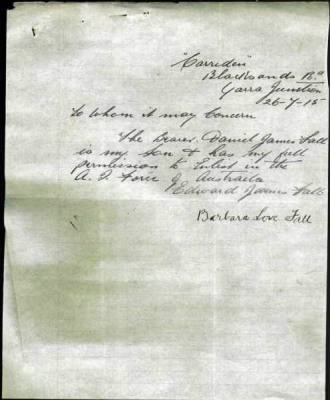 "Carriden"
Blacksands Rd
Yarra Junction
26-7-15
To whom it may Concern
The bearer Daniel James Fall
is my Son & has my full
permission to Enlist in the
A. I. Force of Australia
Edward James Fall
Barbara Love Fall